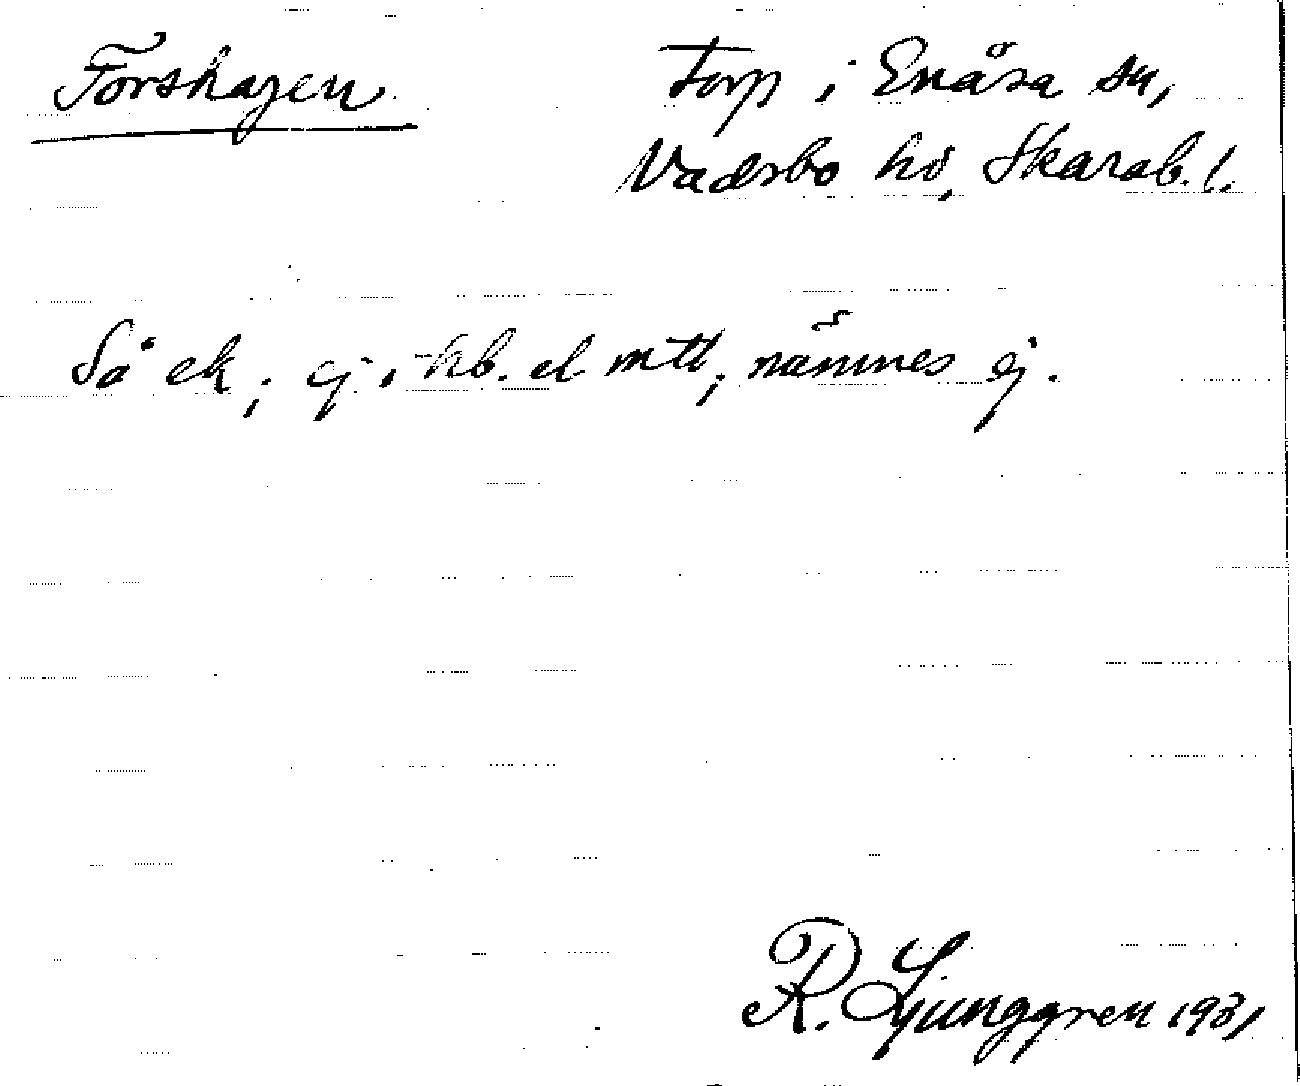 Forshagen
Torp i Enåsa sn,
Vadsbo hd, Skarab. l.
Så ek; ej i hb. el mtl; nämnes ej.
R. Ljunggren 1931